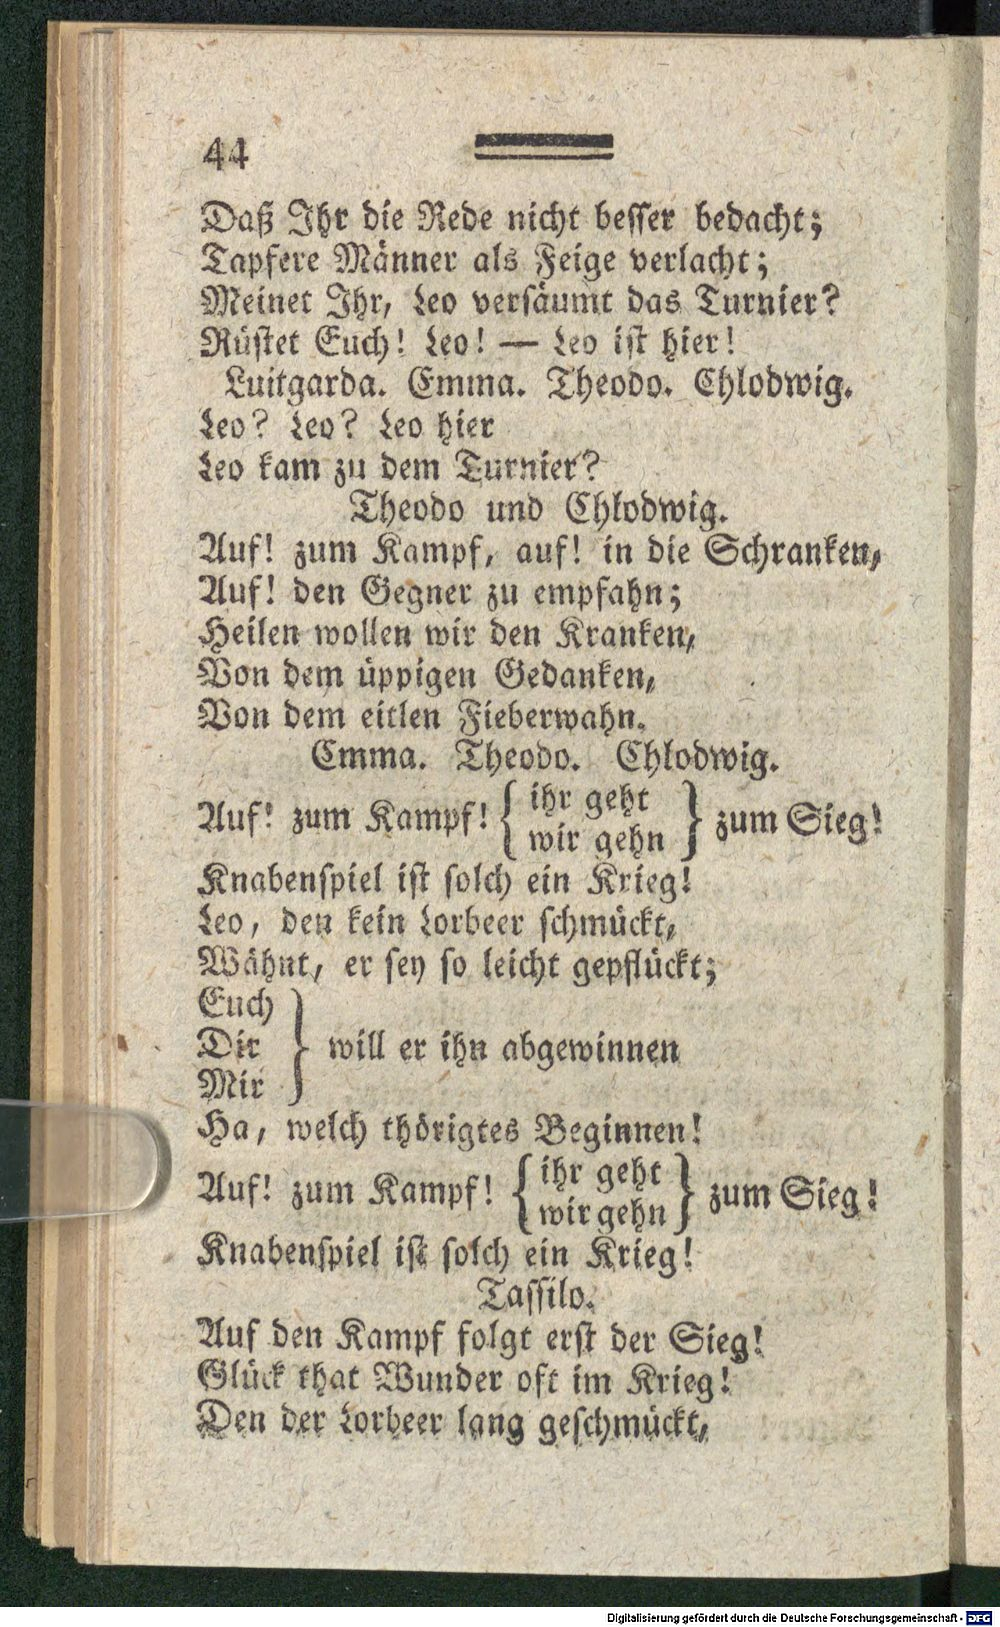 44
Daß Ihr die Rede nicht besser bedacht;
Tapfere Männer als Feige verlacht;
Meinet Ihr, Leo versäumt das Turnier?
Rüstet Euch! Leo! — Leo ist hier!
Luitgarda. Emma. Theodo. Chlodwig.
Leo? Leo? Leo hier
Leo kam zu dem Turnier?
Theodo und Chlodwig.
Auf! zum Kampf, auf! in die Schranken,
Auf! den Gegner zu empfahn;
Heilen wollen wir den Kranken,
Von dem üppigen Gedanken,
Von dem eitlen Fieberwahn.
Emma. Theodo. Chlodwig.
Auf! zum Kampf! { ihr geht
wir gehn } zum Sieg!
Knabenspiel ist solch ein Krieg!
Leo, den kein Lorbeer schmückt,
Wähnt, er sey so leicht gepflückt;
Euch
Dir } will er ihn abgewinnen
Mir
Ha, welch thörigtes Beginnen!
Auf! zum Kampf! { ihr geht
wir gehn } zum Sieg!
Knabenspiel ist solch ein Krieg!
Tassilo.
Auf den Kampf folgt erst der Sieg!
Glück that Wunder oft im Krieg!
Den der Lorbeer lang geschmückt,
Digitalisierung gefördert durch die Deutsche Forschungsgemeinschaft - DFG